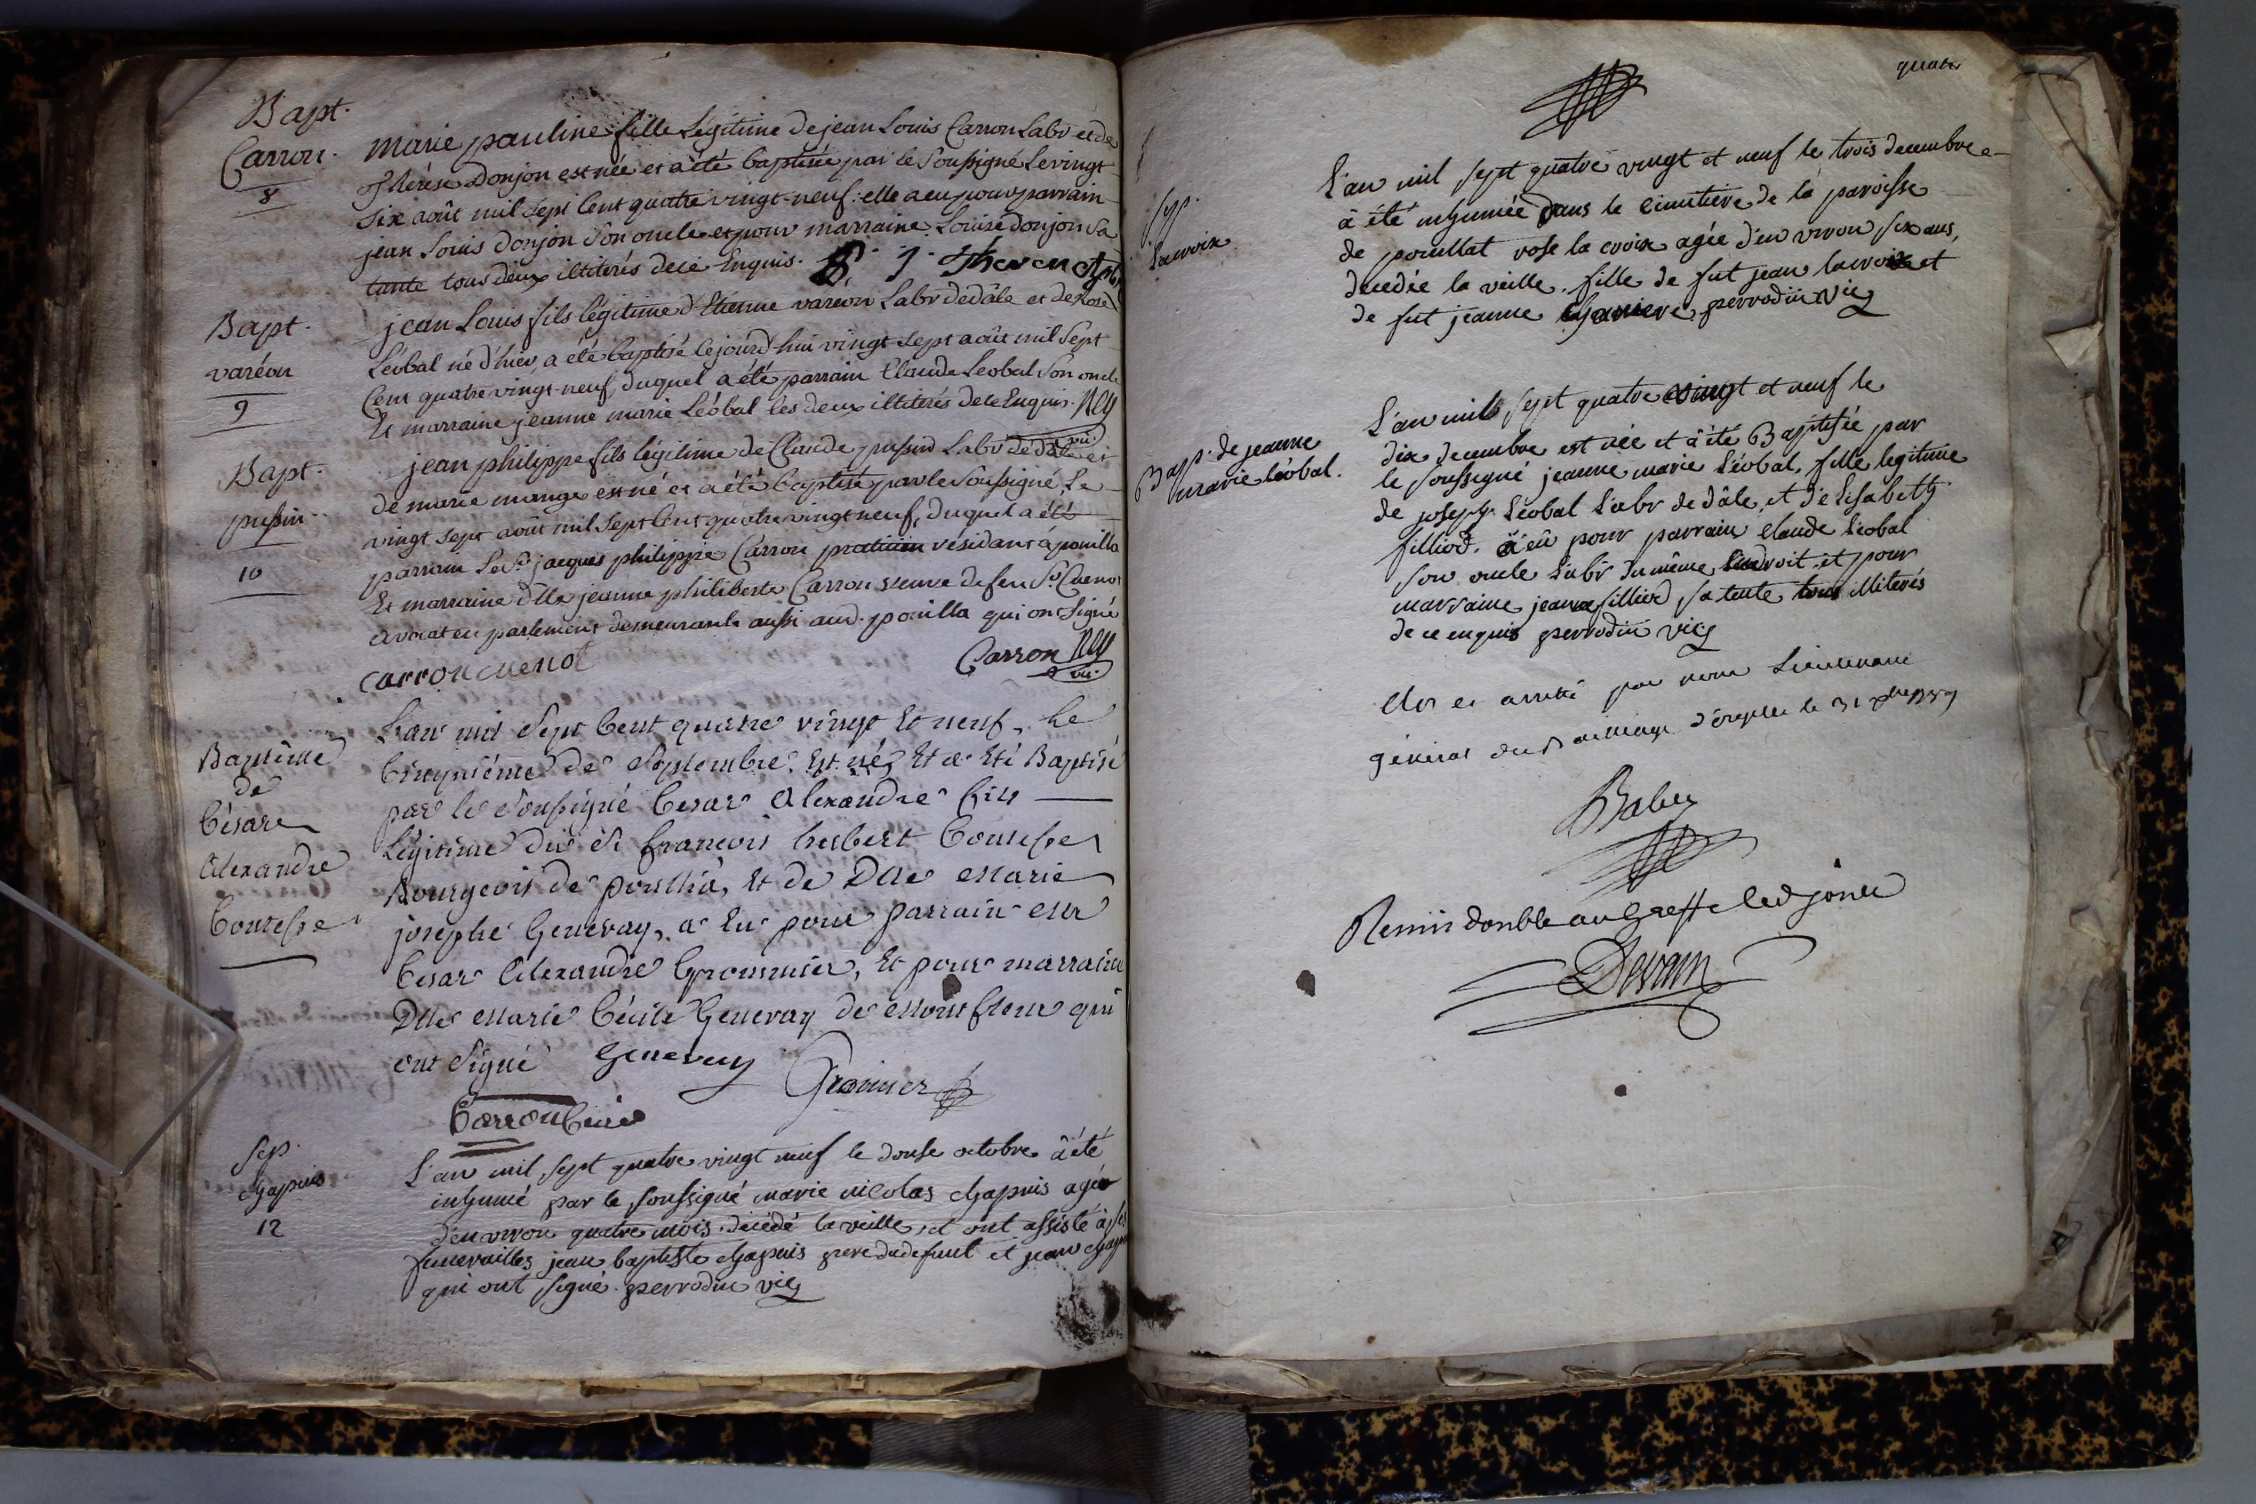 Bapt.
Carron.
8
Marie pauline fille Légitime de jean Louis Carron Labr et de
thérèse Donjon est née et a été baptisée par le Soussigné Le vingt
six août mil sept Cent quatre vingt-neuf: elle a eu pour parrain
jean Louis donjon Son oncle et pour marraine Louise donjon Sa
tante tous deux illiterés de ce Enquis. J. Thevenot
Bapt.
varéon
9
jean Louis fils légitime d'Etienne varéon Labr de dâle et de Rose
Léobal né d'hier, a été baptisé le jourd'hui vingt sept août mil Sept
Cent quatre vingt-neuf, duquel a été parrain Claude Leobal Son oncle
Et marraine jeanne marie Léobal les deux illiterés de ce Enquis. Rey
vic.
Bapt.
pussin
10
jean philippe fils légitime de Claude pussin Labr de dâle et
de marie monge est né et a été baptisé par le Soussigné Le
vingt sept août mil Sept Cent quatre vingt neuf, duquel a été
parrain Le Sr jacques philippe Carron praticien résidant à pouilla
Et marraine dlle jeanne philiberte Carron veuve de feu Sr Cuenot
avocat en parlement demeurante aussi aud. pouilla qui ont Signé
carron cuenot Carron Rey
vic.
Baptême
de
César
Alexandre
Contesse
L'an mil Sept Cent quatre vingt Et neuf, Le
Cinquième de Septembre Est né, Et a Eté Baptisé
par le Soussigné Cesar Alexandre fils
Légitime du Sr françois herbert Contesse
Bourgeois de pouilla, Et de Dlle Marie
josephe Genevay, a Eu pour parrain Mr
Cesar Alexandre Grommier, Et pour marraine
Dlle Marie Cécile Genevay de Montfleur qui
ont Signé Genevay Gromier
Carron Curé
Sep.
chapuis
12
L'an mil sept quatre vingt neuf le douse octobre â été
inhumé par le soussigné marie nicolas chapuis agé
d'environ quatre mois. décédé la veille, et ont assisté à ses
funerailles jean baptiste chapuis pere du defunt et jean
qui ont signé. perrodin vic
quatre
Sep.
Lacroix
L'an mil sept quatre vingt et neuf le trois decembre
à été inhumée dans le cimetiere de la paroisse
de pouillat rose la croix agée d'environ six ans,
decedée la veille. fille de fut jean lacroix et
de fut jeanne perrodin vic
Bapt. de jeanne
marie léobal.
L'an mil sept quatre vingt et neuf le
dix decembre est née et â été Baptisée par
le soussigné jeanne marie Léobal, fille legitime
de joseph Léobal Labr de dâle, et d'Elisabeth
filliod. à eû pour parrain claude Léobal
son oncle Labr du même endroit. et pour
marraine jeanne filliod sa tente tous illiterés
de ce enquis perrodin vic
Clos et arretté par nous Lieutenant
général du Bailliage d'orgelet le 31 xbre 1789
Babey
Remis double au Greffe led jour
Devain